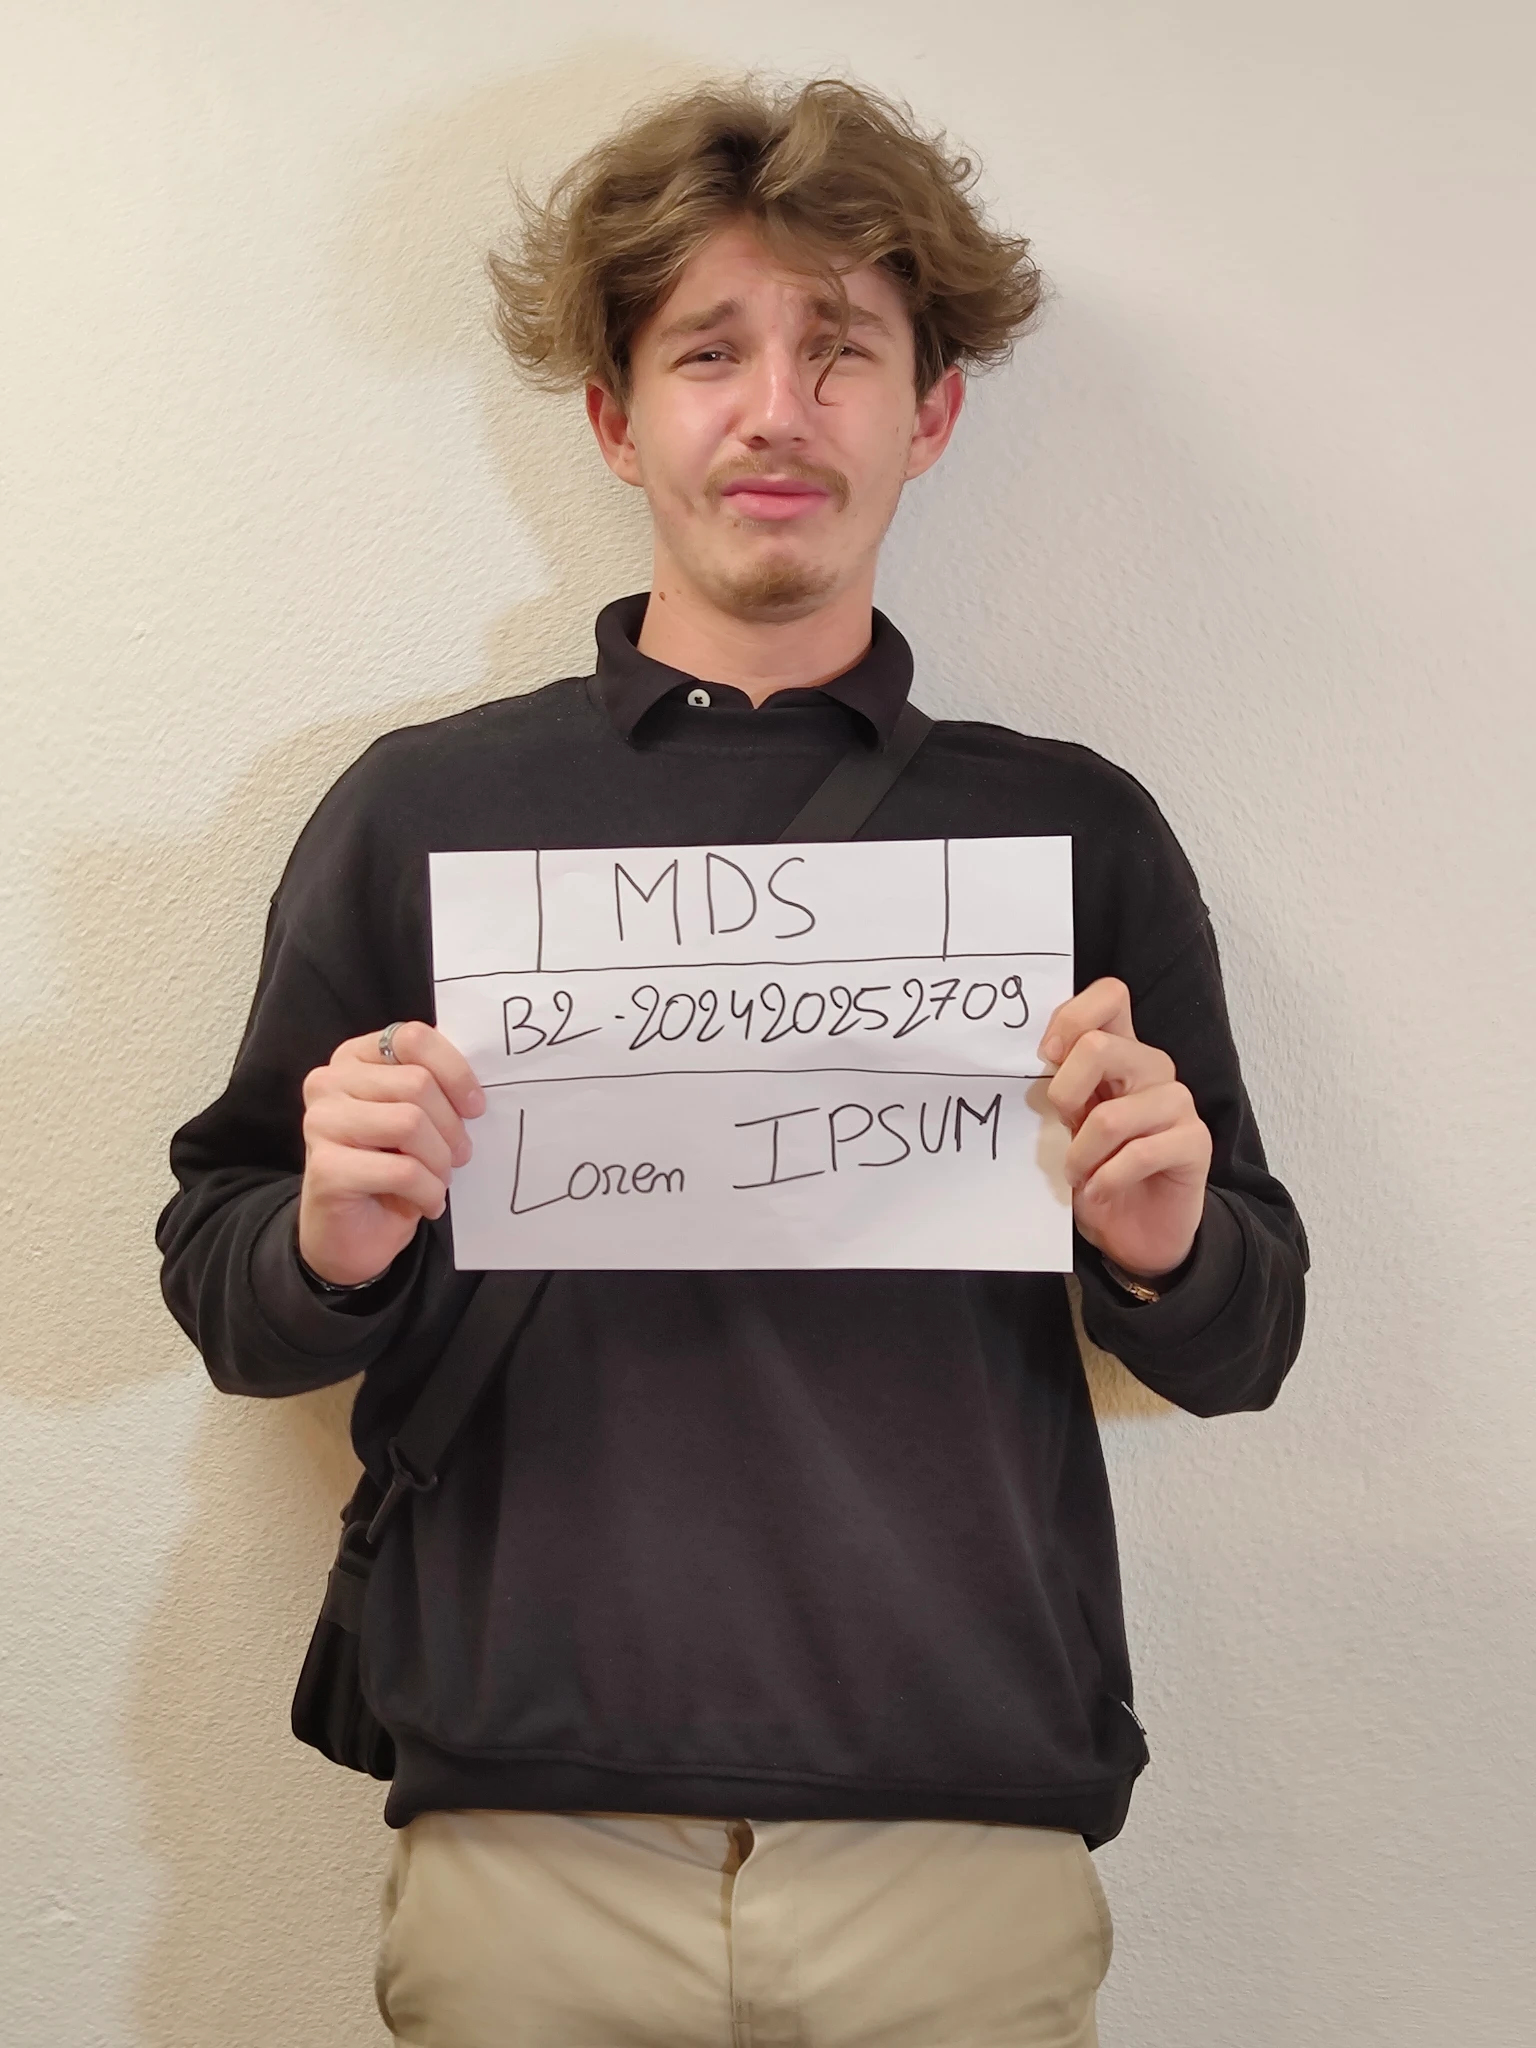 MDS
B2-202420252709
Lorem IPSUM